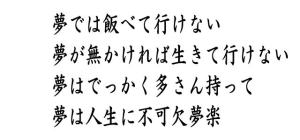 夢では飯べて行けない
夢が無かければ生きて行けない
夢はでっかく多さん持って
夢は人生に不可欠夢楽